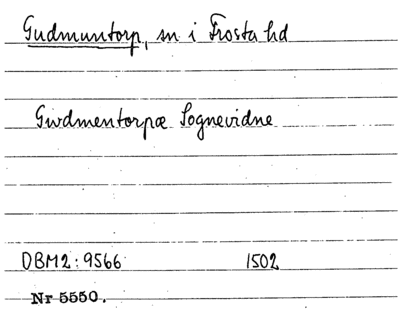 Gudmuntorp, sn i Frosta hd
Gwdmentorpæ Sognevidne
DBM2: 9566 1502
Nr 5550.